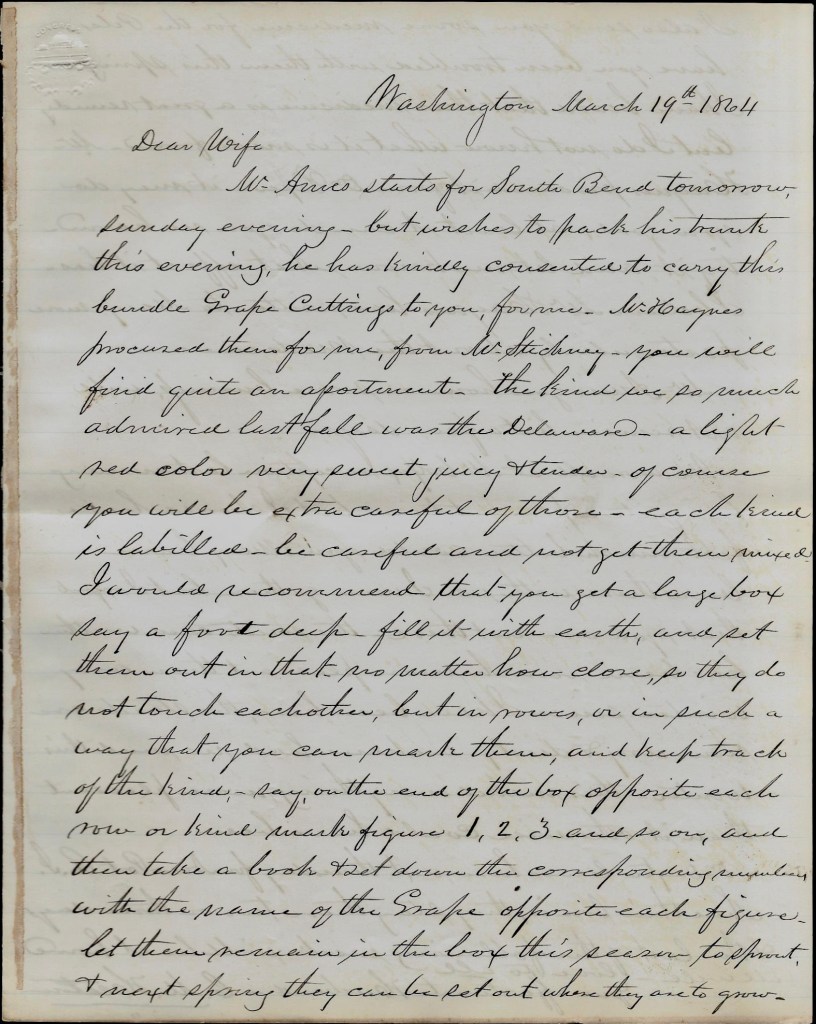 Washington March 19th 1864
Dear Wife
Mr. Ames starts for South Bend tomorrow,
sunday evening - but wishes to pack his trunk
this evening, he has kindly consented to carry this
bundle Grape Cuttings to you, for me - Mr. Haynes
procured them for me, from Mr. Stickney - you will
find quite an apartment - the kind we so much
admired last fall was the Delaware - a light
red color very sweet juicy & tender - of course
you will be extra careful of those - each kind
is labilled - be careful and not get them mixed -
I would recommend that you get a large box
say a foot deep - fill it with earth, and set
them out in that - no matter how close, so they do
not touch eachother, but in rows, or in such a
way that you can mark them, and keep track
of the kind, - say, on the end of the box opposite each
row or kind mark figure 1, 2, 3 - and so on, and
then take a book & set down the corresponding numbers
with the name of the Grape opposite each figure -
let them remain in the box this season to sprout,
& next spring they can be set out where they are to grow -